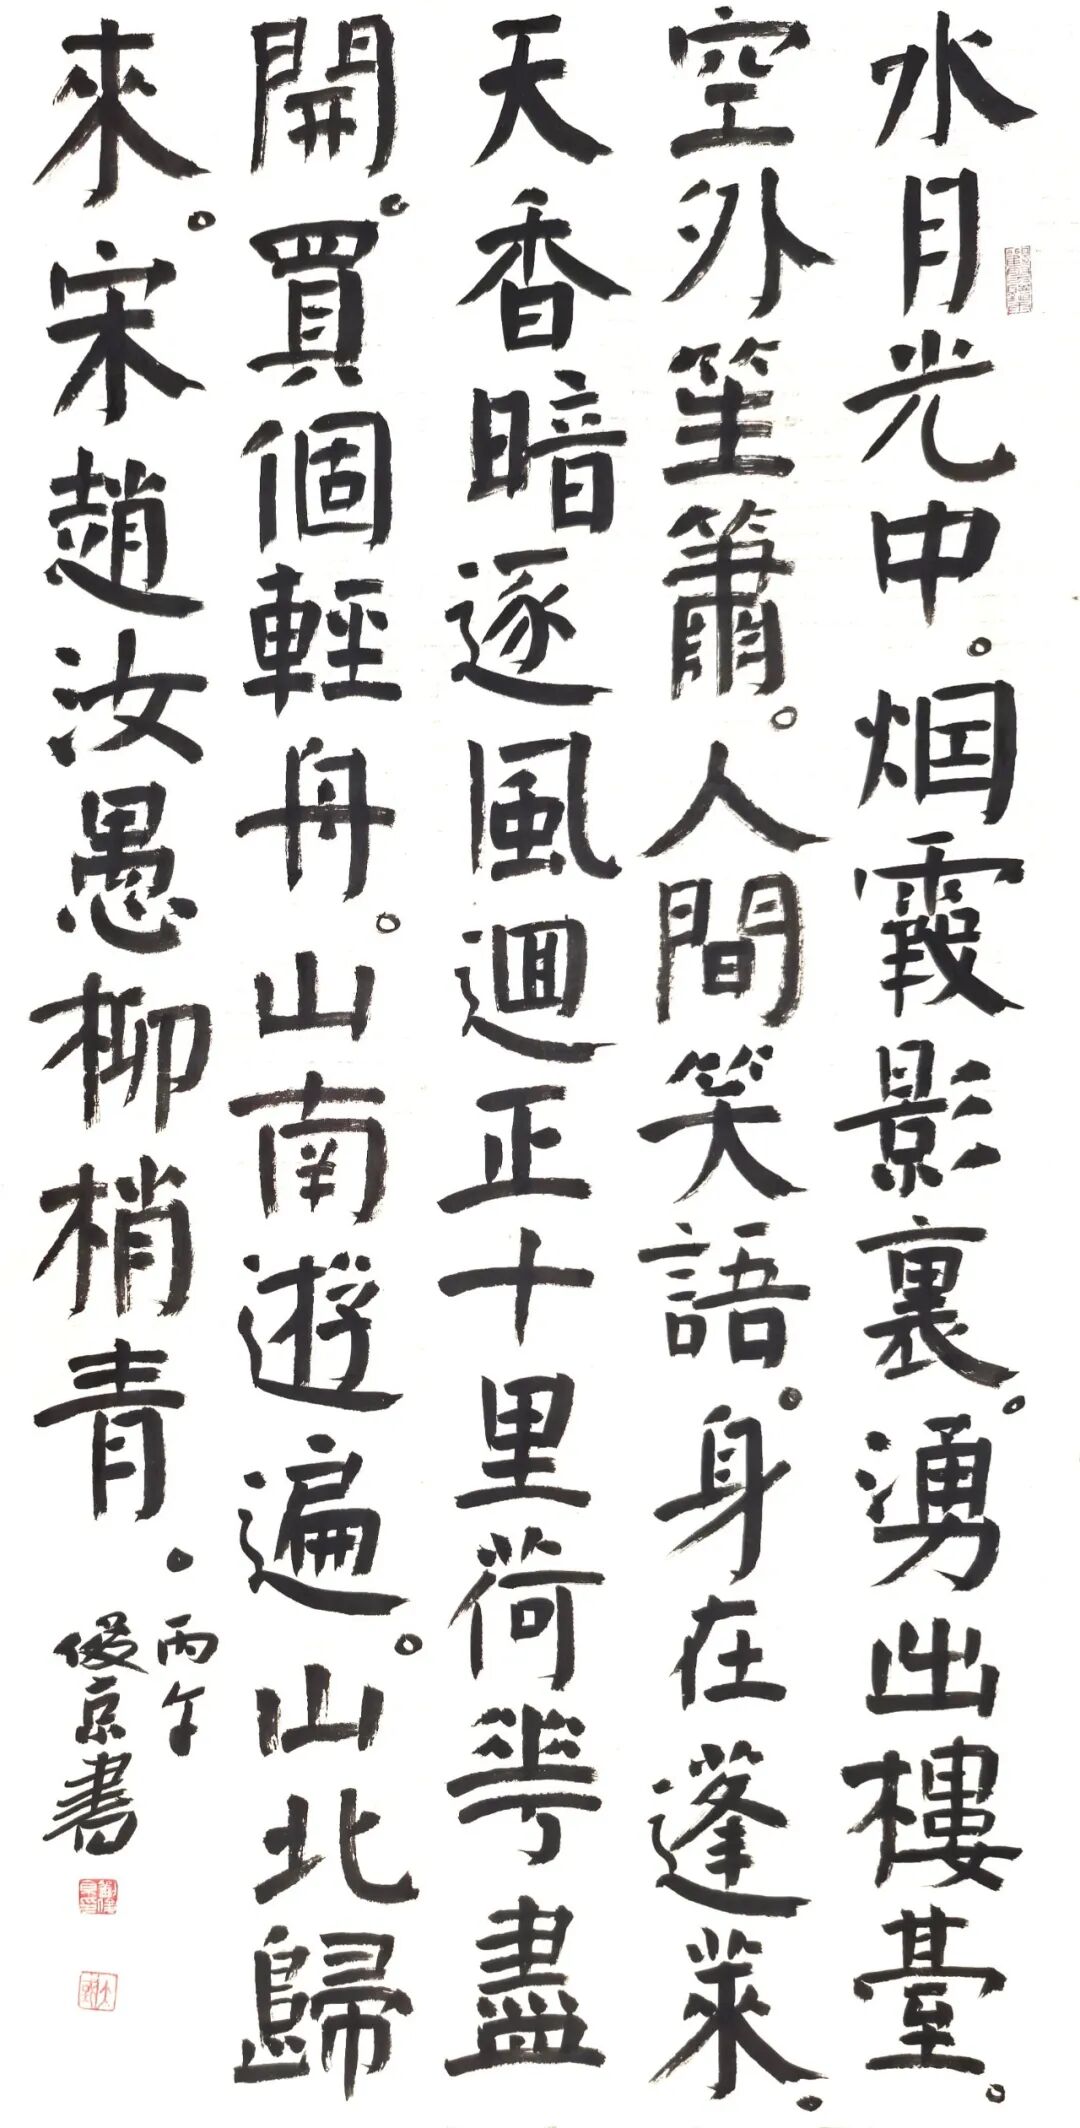 水月光中。烟霞影裏。湧出樓臺。
空外笙簫。人間笑語。身在蓬萊。
天香暗逐風迴正十里荷華盡
開。買個輕舟。山南遊遍。山北歸
來。宋趙汝愚柳梢青。
丙午
俊京書